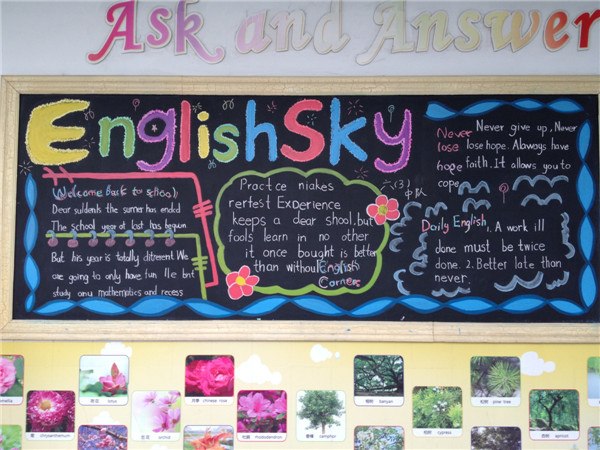 Ask and Answer
EnglishSky
Welcome Back to school)
Dear suldents the sumer has endcd
The school year at last has begun
But his year is totally ditreret.We
are going to only have fun
study onu mathematics and recess
Practce makes
rerfest Experience
keeps a dear shool.but
fools learn in no other
it once bought is better
than without
English
Corner
六(3)中队
Never
lose
hope
Never give up,Never
lose hope. Abways have
faith.It allows you to
cope
Daily English
1. A work ill
done must be twice
done. 2.Better late than
never.
月季 china rose
chrysanthemum
lotus
orchid
杜鹃 rhododendron
camphor
榕树 banyan
cypress
松树 pine tree